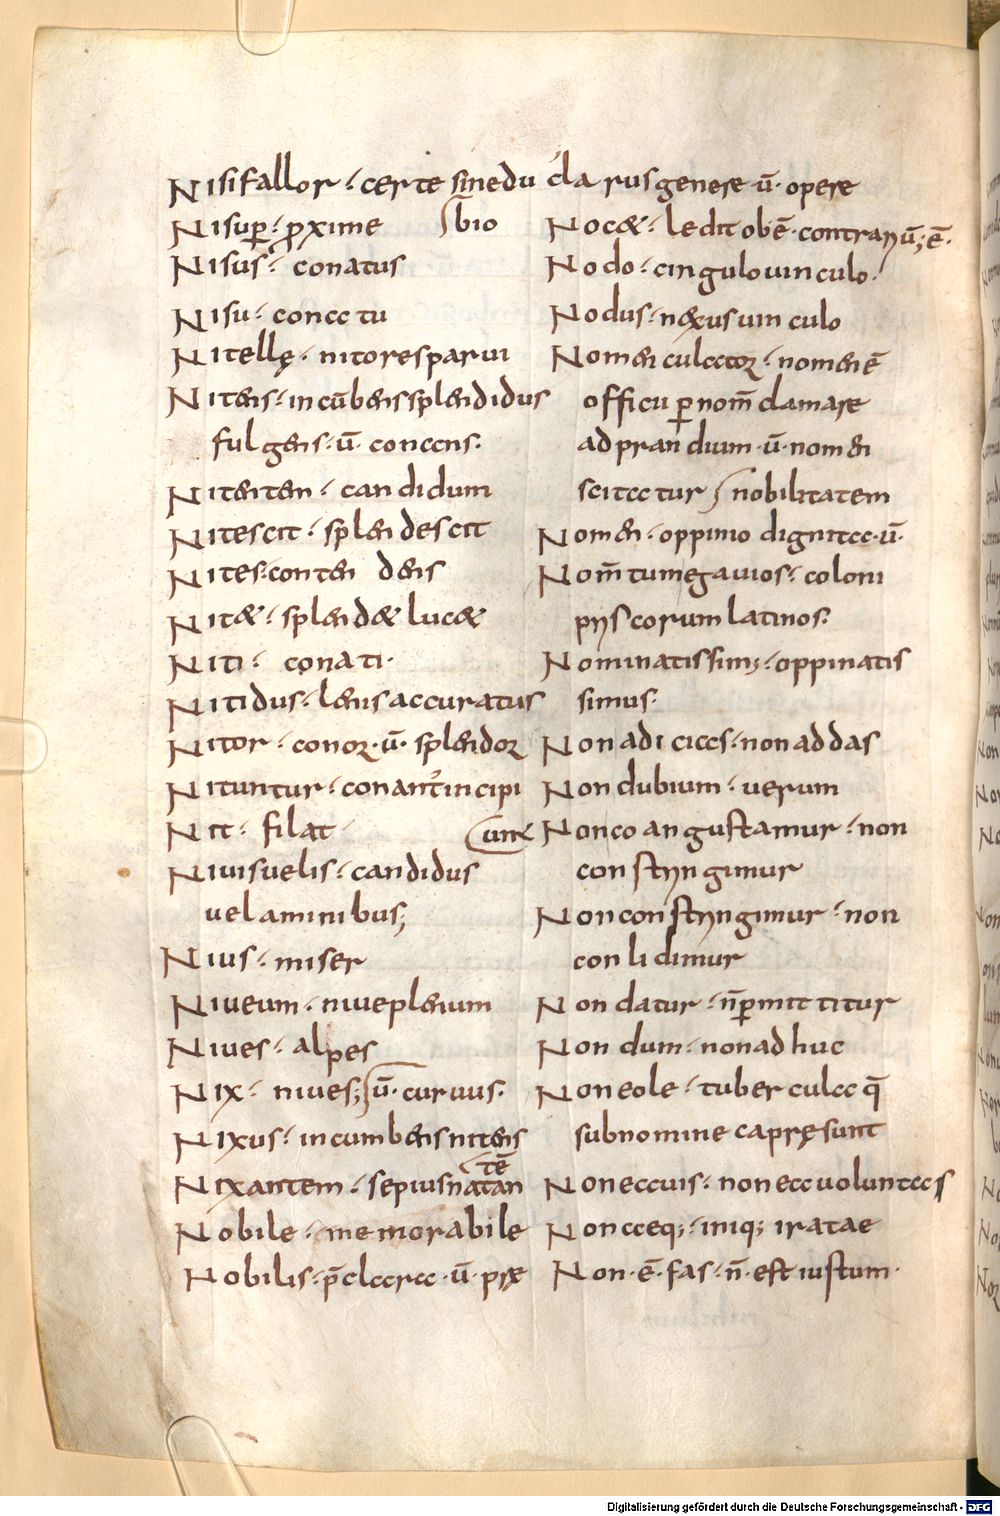 Nisi fallor · certe sine du
bio
Nisup̱ · ꝓxime
Nisus · conatus
Nisu · conatu
Nitellę · nitores parui
Nitens · incūbens splendidus
fulgens · ū · conans ·
Nitentem · candidum
Nitescit · splendescit
Nites · contendens
Nit& · splend& luc&
Niti · conati ·
Nitidus · lenis accuratus
Nitor · conor · ū · splendor
Nituntur · conant incipi
unt
Nit · filat
Niuis uelis · candidus
uelaminibus;
Nius · miser
Niueum · niue plenum
Niues · alpes
Nix · niues; ū · curuus ·
Nixus · incumbens nitens
Nixantem · sepius natan
tē
Nobile · memorabile
Nobilis · p̄clara · ū · prę
clarus genere ū · opere
Noc& · ledit obē · contrariū; ē ·
Nodo · cingulo uinculo ·
Nodus · nexus uinculo
Nomenculator · nomen ē
officii ꝑ nom̄ clamare
ad prandium · ū · nomen
seitatur nobilitatem
Nomen · oppinio dignita · ū ·
Nom̄tumegauios · coloni
priscorum latinos ·
Nominatissim; · oppinatis
simus ·
Non adicias · non addas
Non dubium · uerum
Non coangustamur · non
constringimur
Non constringimur · non
conlidimur
Non datur · n̄ ꝑmittitur
Non dum · non ad huc
Noneole · tubercula q̄
sub nomine caprę sunt
Nonecuis · non ea uoluntas
Non aeq; · iniq; iratae
Non · ē · fas · n̄ · est iustum ·
Digitalisierung gefördert durch die Deutsche Forschungsgemeinschaft - DFG